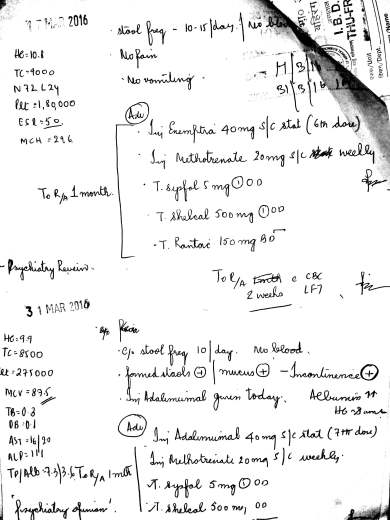 7 MAR 2016
stool freq - 10-15/day. / No blood
No pain
No vomiting
I.B.D.
HG=10.8
TC=9000
N72 L24
Plt=1,80000
ESR=50
MCH=29.6
Adv
Inj Exemptia 40mg s/c stat (6th dose)
Inj Methotrexate 20mg s/c weekly
T. sysfol 5mg 1 0 0
T. shelcal 500mg 1 0 0
T. Rantac 150mg BD
To R/A 1 month.
Psychiatry Review.
To R/A 2 weeks c CBC
LFT
31 MAR 2016
HG=9.9
TC=8500
Plt=275000
MCV=89.5
TB=0.3
DB=0.1
AST=16/20
ALP=111
TP/Alb=7.3/3.6
c/o stool freq 10/day. No blood.
formed stools + / mucus + - Incontinence +
Inj Adalimumab given today.
Adv
Inj Adalimumab 40mg s/c stat (7th dose)
Inj Methotrexate 20mg s/c weekly.
T. sysfol 5mg 1 0 0
T. shelcal 500mg, 0 0
To R/A 1 mth
Psychiatry opinion